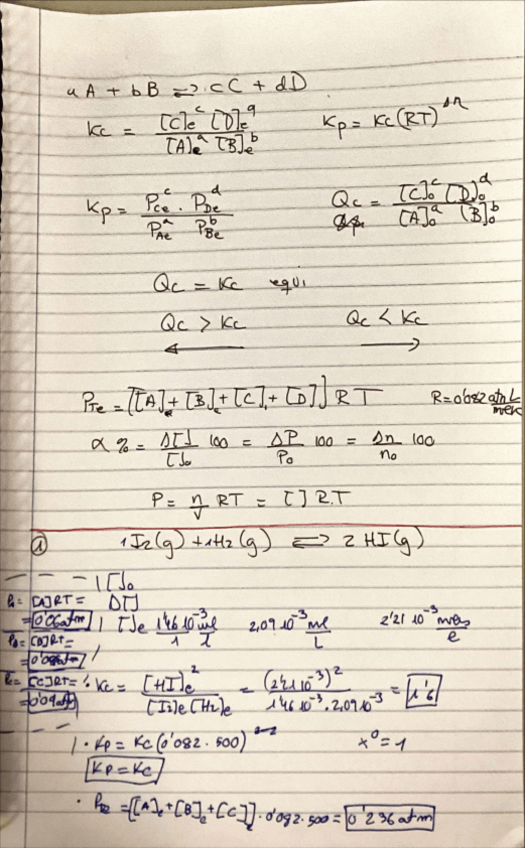 aA + bB ⇌ cC + dD
Kc = [C]e^c [D]e^d / [A]e^a [B]e^b    Kp = Kc(RT)^Δn
Kp = PCe^c · PDe^d / PAe^a PBe^b    Qc = [C]o^c [D]o^d / [A]o^a [B]o^b
Qc = Kc equi
Qc > Kc    Qc < Kc
←    →
PTe = [[A]e + [B]e + [C]e + [D]] RT    R = 0'082 atm L / mol K
α % = Δ[ ] / [ ]o 100 = ΔP / Po 100 = Δn / no 100
P = n/V RT = [ ] R.T
① 1 I2(g) + 1 H2(g) ⇌ 2 HI(g)
[ ]o
Δ[ ]
[ ]e 1'46 10^-3 mol / 1 l    2,09 10^-3 mol / L    2'21 10^-3 moles / e
[A]RT =
= 0'06 atm
[B]RT =
= 0'086 atm
[C]RT =
= 0'09 atm
Kc = [HI]e^2 / [I2]e [H2]e = (2'21 10^-3)^2 / 1'46 10^-3 . 2,09 10^-3 = 1'6
· Kp = Kc (0'082 . 500)^2-2    x^0 = 1
Kp = Kc
· PTe = [[A]e + [B]e + [C]e] · 0'082 . 500 = 0'236 atm